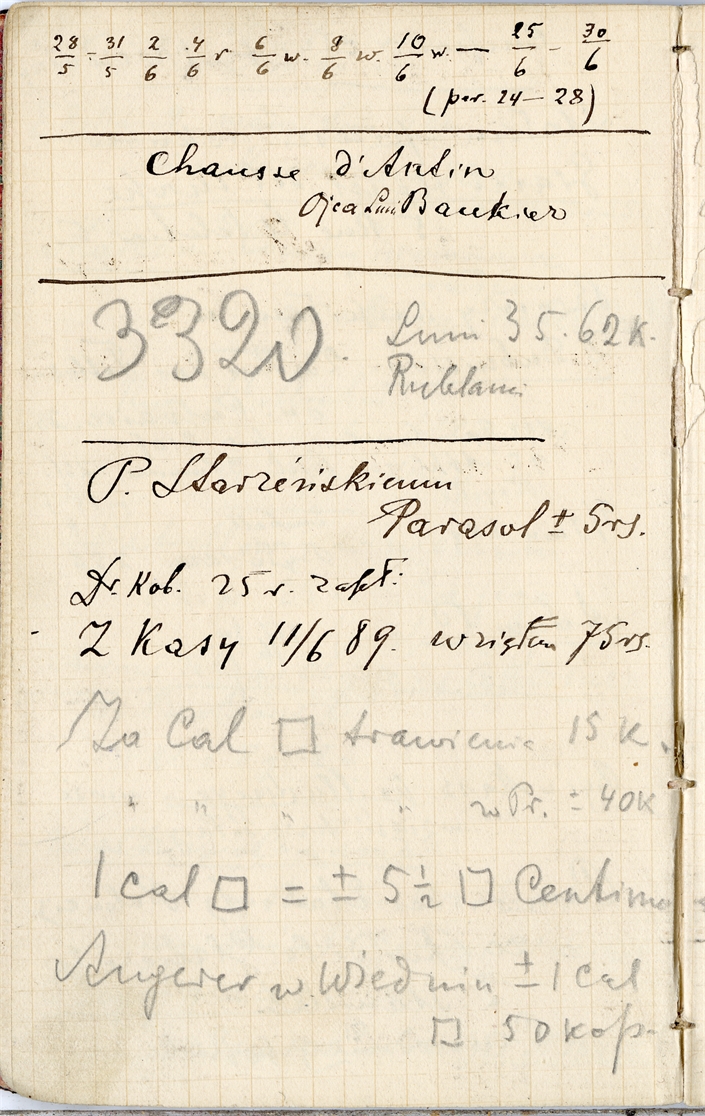 28/5 - 31/5 2/6 4/6 r 6/6 w. 8/6 w. 10/6 w — 25/6 - 30/6
(per. 24 — 28)
Chausse d'Antin
Ojca Luni Bankier
3320.
Luni 35.62 K.
Rublami
P. Starzeńskiemu
Parasol ± 5 rs.
Dr. Kob. 25 r. zapł:
Z Kasy 11/6 89. wziąłem 75 rs.
Za Cal □ trawienia 15 K.
" " " " w Pr. ± 40 K
1 cal □ = ± 5 1/2 □ Centim
Angerer w Wiedniu ± 1 cal
□ 50 kop.